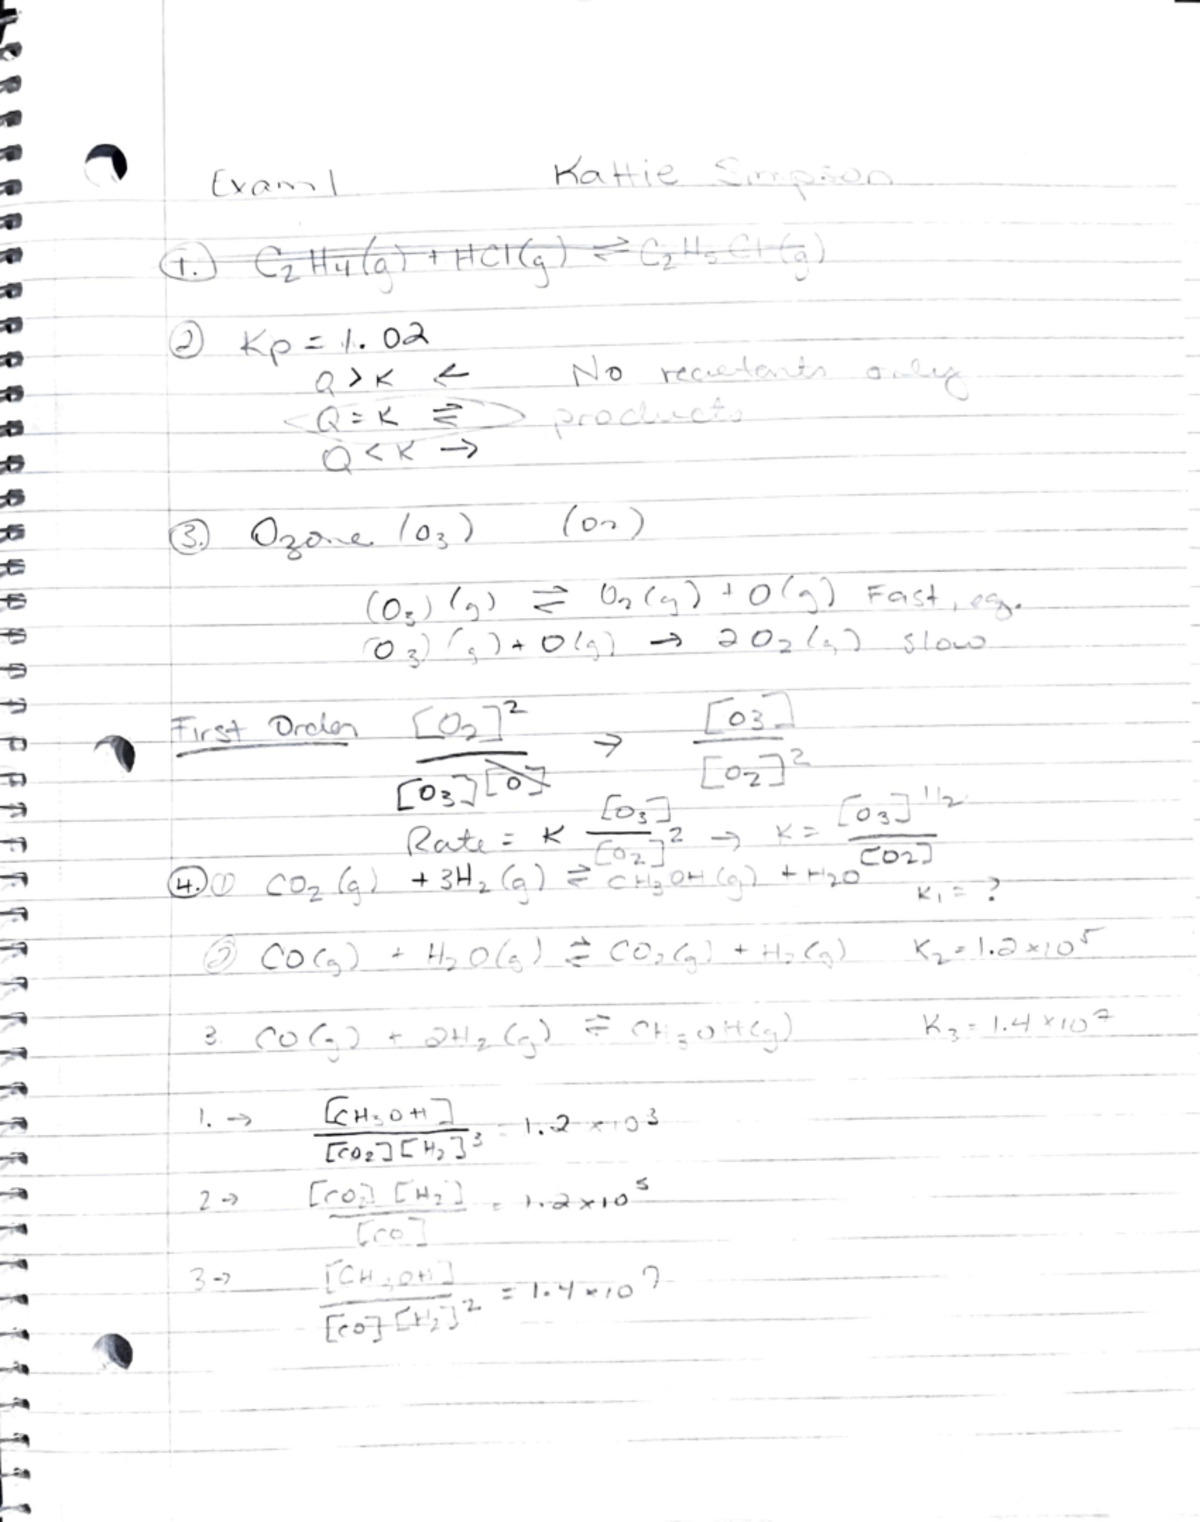 Exam 1 Kattie Simpson
1. C2H4(g) + HCl(g) ⇌ C2H5Cl(g)
2 Kp = 1.02
Q > K ← No recietants only
Q = K ⇌ products
Q < K →
3. Ozone (O3) (O2)
(O3)(g) ⇌ O2(g) + O(g) Fast, eq.
(O3)(g) + O(g) → 2O2(g) slow
First Order [O2]² / [O3][O] → [O3] / [O2]²
Rate = K [O3] / [O2]² → K = [O3]^1/2 / [O2]
4. ① CO2(g) + 3H2(g) ⇌ CH3OH(g) + H2O K1 = ?
② CO(g) + H2O(g) ⇌ CO2(g) + H2(g) K2 = 1.2 x 10^5
3. CO(g) + 2H2(g) ⇌ CH3OH(g) K3 = 1.4 x 10^7
1. → [CH3OH] / [CO2][H2]³ = 1.2 x 10^3
2 → [CO2][H2] / [CO] = 1.2 x 10^5
3 → [CH3OH] / [CO][H2]² = 1.4 x 10^7